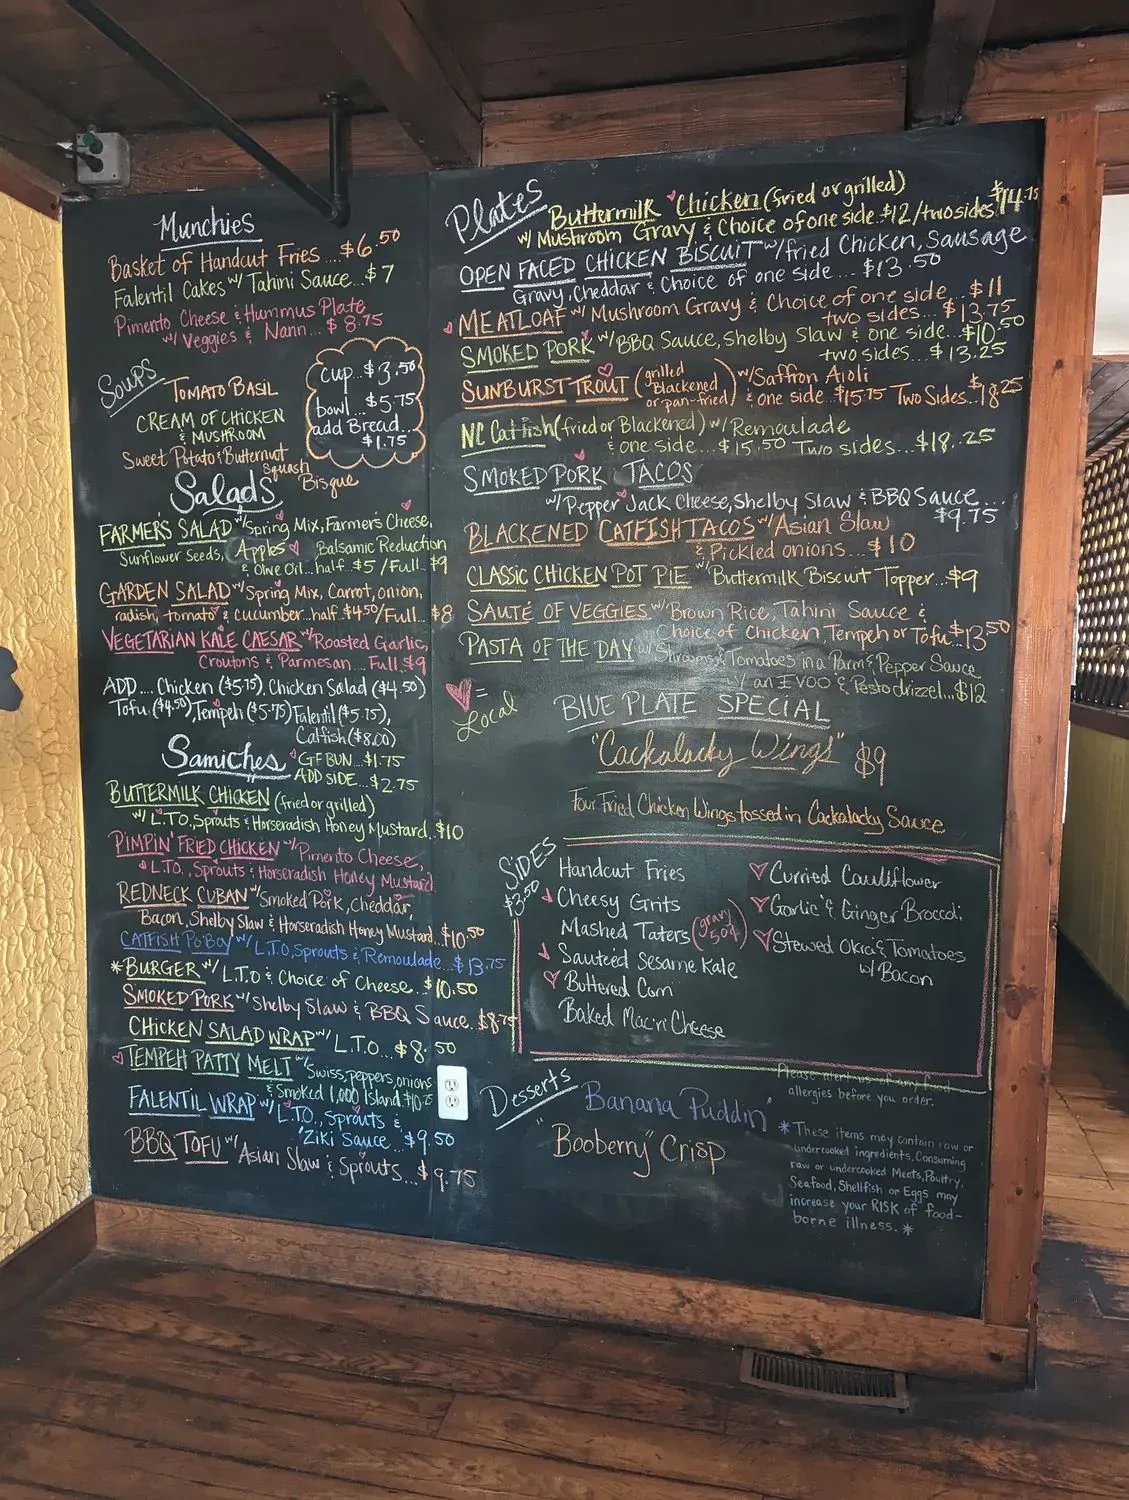 Munchies
Basket of Handcut Fries... $6.50
Falentil Cakes w/ Tahini Sauce... $7
Pimento Cheese & Hummus Plate
w/ Veggies & Nann... $8.75
Soups
Tomato Basil
Cream of Chicken
& Mushroom
Sweet Potato & Butternut
Squash
Bisque
cup... $3.50
bowl... $5.75
add Bread...
$1.75
Salads
Farmer's Salad w/ Spring Mix, Farmer's Cheese,
Sunflower Seeds, Apples Balsamic Reduction
& Olive Oil... half $5 / Full.. $9
Garden Salad w/ Spring Mix, Carrot, onion,
radish, tomato & cucumber.. half $4.50 / Full.. $8
Vegetarian Kale Caesar w/ Roasted Garlic,
Croutons & Parmesan.... Full $9
ADD.... Chicken ($5.75), Chicken Salad ($4.50)
Tofu ($4.50), Tempeh ($5.75) Falentil ($5.75),
Catfish ($8.00)
Samiches
GF BUN... $1.75
ADD SIDE... $2.75
Buttermilk Chicken (fried or grilled)
w/ L.T.O, Sprouts & Horseradish Honey Mustard. $10
Pimpin' Fried Chicken w/ Pimento Cheese,
L.T.O., Sprouts & Horseradish Honey Mustard
Redneck Cuban w/ Smoked Pork, cheddar,
Bacon, Shelby Slaw & Horseradish Honey Mustard... $10.50
Catfish Po-Boy w/ L.T.O, Sprouts & Remoulade... $13.75
*Burger w/ L.T.O & Choice of Cheese.. $10.50
Smoked Pork w/ Shelby Slaw & BBQ Sauce. $8.75
Chicken Salad Wrap w/ L.T.O... $8.50
Tempeh Patty Melt w/ Swiss, peppers, onions
& Smoked 1,000 Island. $10.25
Falentil Wrap w/ L.T.O., Sprouts &
'Ziki Sauce.. $9.50
BBQ Tofu w/ Asian Slaw & Sprouts... $9.75
Plates
Buttermilk Chicken (fried or grilled)
w/ Mushroom Gravy & Choice of one side. $12 / two sides $14.75
Open Faced Chicken Biscuit w/ fried Chicken, Sausage
Gravy, Cheddar & Choice of one side.... $13.50
Meatloaf w/ Mushroom Gravy & Choice of one side... $11
two sides... $13.75
Smoked Pork w/ BBQ Sauce, Shelby Slaw & one side... $10.50
two sides... $13.25
Sunburst Trout (grilled Blackened or pan-fried) w/ Saffron Aioli
& one side... $15.75 Two Sides... $18.25
NC Catfish (fried or Blackened) w/ Remoulade
& one side... $15.50 Two sides... $18.25
Smoked Pork Tacos
w/ Pepper Jack Cheese, Shelby Slaw & BBQ Sauce...
$9.75
Blackened Catfish Tacos w/ Asian Slaw
& Pickled onions... $10
Classic Chicken Pot Pie w/ Buttermilk Biscuit Topper.. $9
Sauté of Veggies w/ Brown Rice, Tahini Sauce &
Choice of Chicken, Tempeh or Tofu $13.50
Pasta of the Day w/ Shrooms & Tomatoes in a Parm & Pepper Sauce
w/ an EVOO & Pesto drizzel... $12
♥ =
Local
Blue Plate Special
"Cackalacky Wings" $9
Four Fried Chicken Wings tossed in Cackalacky Sauce
Sides
$3.50
Handcut Fries
Cheesy Grits
Mashed Taters (gravy 50¢)
Sauteed Sesame Kale
Buttered Corn
Baked Mac'n Cheese
Curried Cauliflower
Garlic & Ginger Broccoli
Stewed Okra & Tomatoes
w/ Bacon
Desserts
Banana Puddin'
"Booberry" Crisp
Please alert us of any food
allergies before you order.
*These items may contain raw or
undercooked ingredients. Consuming
raw or undercooked Meats, Poultry,
Seafood, Shellfish or Eggs may
increase your RISK of food-
borne illness.*